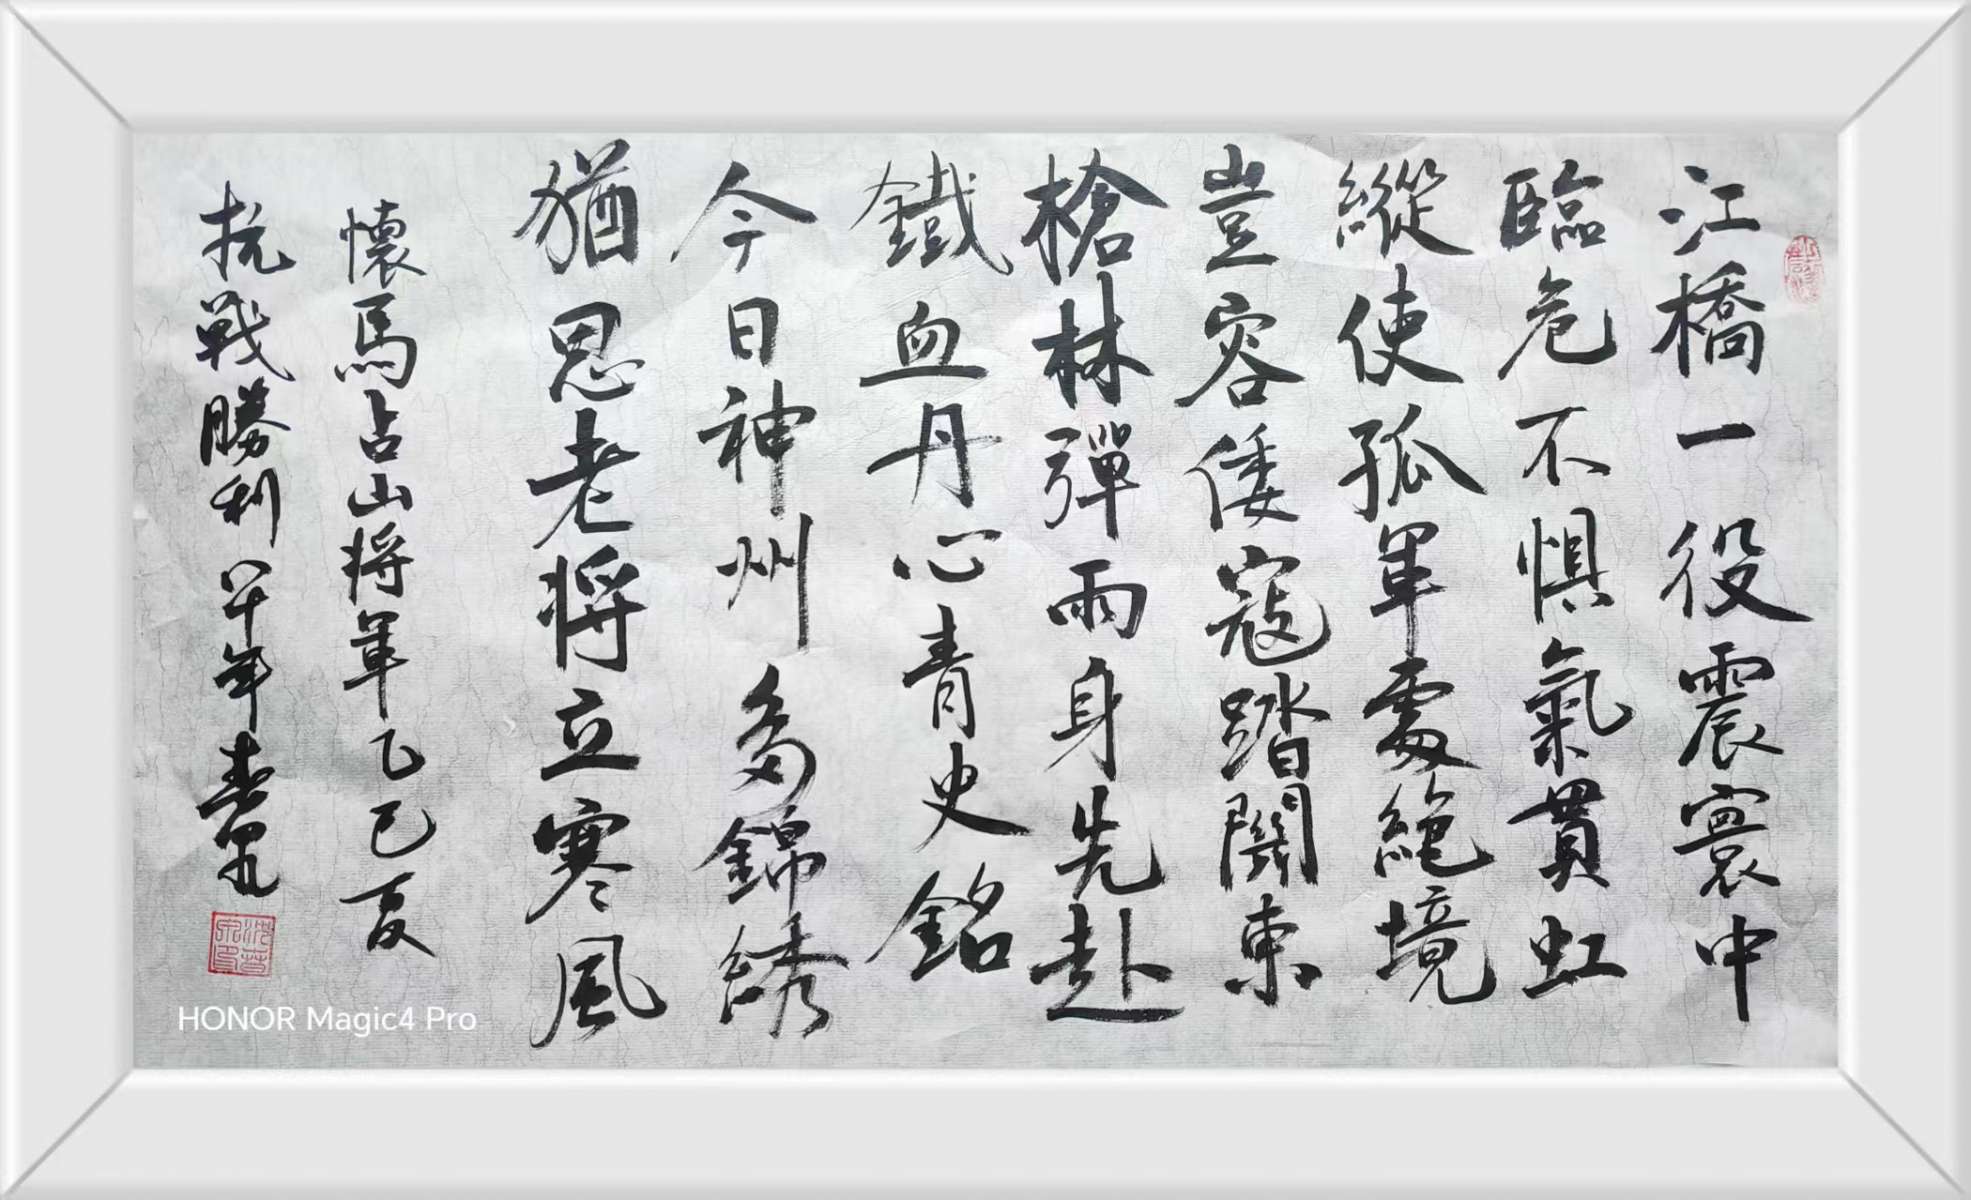 江橋一役震寰中
臨危不惧氣貫虹
縱使孤軍處絕境
豈容倭寇踏關東
槍林彈雨身先赴
鐵血丹心青史銘
今日神州多錦綉
猶思老将立寒風
懷馬占山将軍乙巳夏
抗戰勝利八十年春
HONOR Magic4 Pro